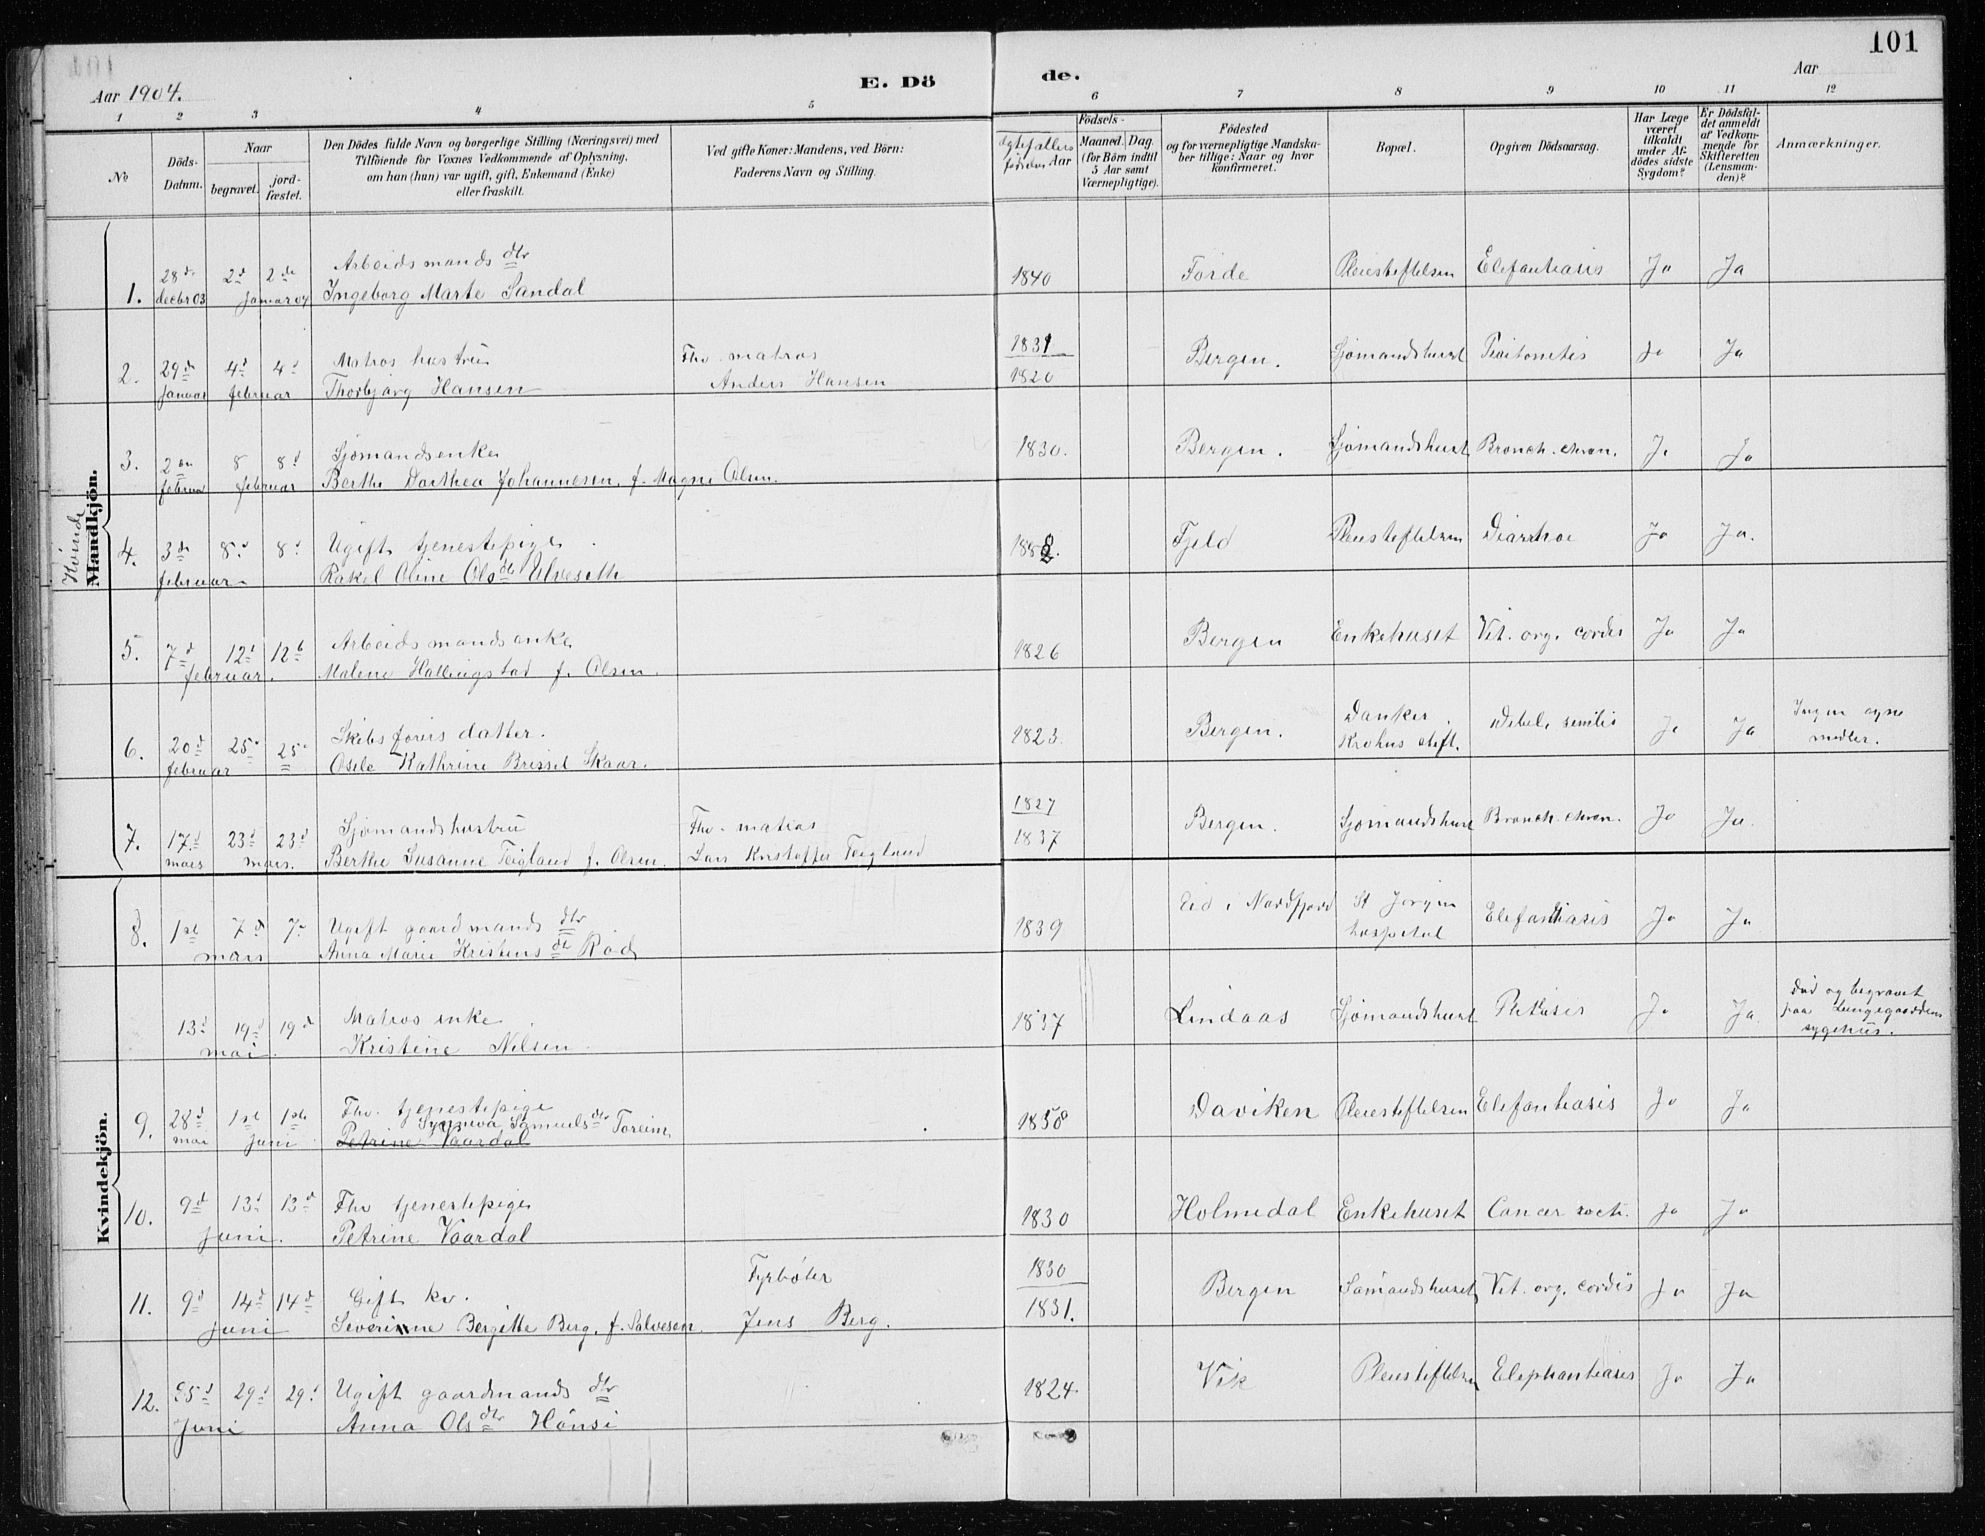 101
Aar 1904.
E. Dö
de.
Aar
1 2 3 4 5 6 7 8 9 10 11 12
No
Döds-
Datum.
Naar
begravet.
jord-
fæstet.
Den Dödes fulde Navn og borgerlige Stilling (Næringsvei) med
Tilföiende for Voxnes Vedkommende af Oplysning,
om han (hun) var ugift, gift, Enkemand (Enke)
eller fraskilt.
Ved gifte Koner: Mandens, ved Börn:
Faderens Navn og Stilling.
Födsels-
Aar
Maaned. Dag.
(for Börn indtil
5 Aar samt
Værnepligtige).
Födested
og for værnepligtige Mandska-
ber tillige: Naar og hvor
konfirmeret.
Bopæl.
Opgiven Dödsaarsag.
Har Læge
været
tilkaldt
under Af-
dödes sidste
Sygdom?
Er Dödsfal-
det anmeldt
af Vedkom-
mende for
Skifteretten
(Lensman-
den)?
Anmærkninger.
Kvinde
Mandkjön.
Kvindekjön.
1. 28de decbr 03 2d 2de januar 04 Arbeidsmands dtr
Ingeborg Marte Sandal 1840 Førde Pleiestiftelsen Elefantiasis Ja Ja
2. 29de januar 4d 4d februar Matros hustru
Thorbjørg Hansen Fhv. matros
Anders Hansen 1831
1820 Bergen. Sjømandshuset Peritonitis Ja Ja
3. 2den februar 8 8d februar Sjømandsenke
Berthe Dorthea Johannesen, f. Magne Olsen. 1830. Bergen. Sjømandshuset Bronch. chron. Ja Ja
4. 3de 8d 8d februar Ugift tjenestepige
Rakel Oline Olsdtr Ulveseth Fjeld Pleiestiftelsen Diarrhoe Ja Ja.
5. 7d 12t 12t februar. Arbeidsmandsenke
Malene Hallingstad f. Olsen. 1826 Bergen Enkehuset Vit. org. cordis Ja Ja
6. 20d 25d 25d februar Skibsførers datter.
Kathrine Brissel Skaar. 1823. Bergen. Danckert
Krohns stift. Debil. senilis Ja Ja Ingen egne
midler.
7. 17d mars 23d 23d mars. Sjømandshustru
Berthe Susanne Teigland f. Olsen. Fhv. matros
Lars Kristoffer Teigland 1827
1837 Bergen. Sjømandshuset Bronch. chron. Ja Ja.
8. 1st 7d 7d mars Ugift gaardmands dtr
Anna Marie Kristensdtr Rød 1839 Eid i Nordfjord St Jørgen
hospital Elefantiasis Ja Ja
13d 19d 19d mai. Matros enke
Kristine Nilsen. 1837 Lindaas Sjømandshuset Phtisis Ja Ja Død og begravet
paa Lungegaardens
sygehus.
9. 28d mai 1ste 1ste juni Fhv. tjenestepige
Synneva Samuelsdtr Toreim
Petrine Vaardal 1850 Daviken Pleiestiftelsen Elefantiasis Ja Ja
10. 9d 13d 13d juni. Fhv tjenestepige
Petrine Vaardal 1830 Holmedal Enkehuset Cancer recti. Ja Ja
11. 9d 14d 14d juni Gift kv.
Severinne Bergitte Berg, f. Salvesen. Fyrbøter
Jens Berg. 1830
1831. Bergen Sømandshuset Vit. org. cordis Ja Ja
12. 25d 29d 29d juni Ugift gaardmands dtr
Anna Olsdtr Hønsi 1824 Vik Pleiestiftelsen Elephantiasis Ja Ja